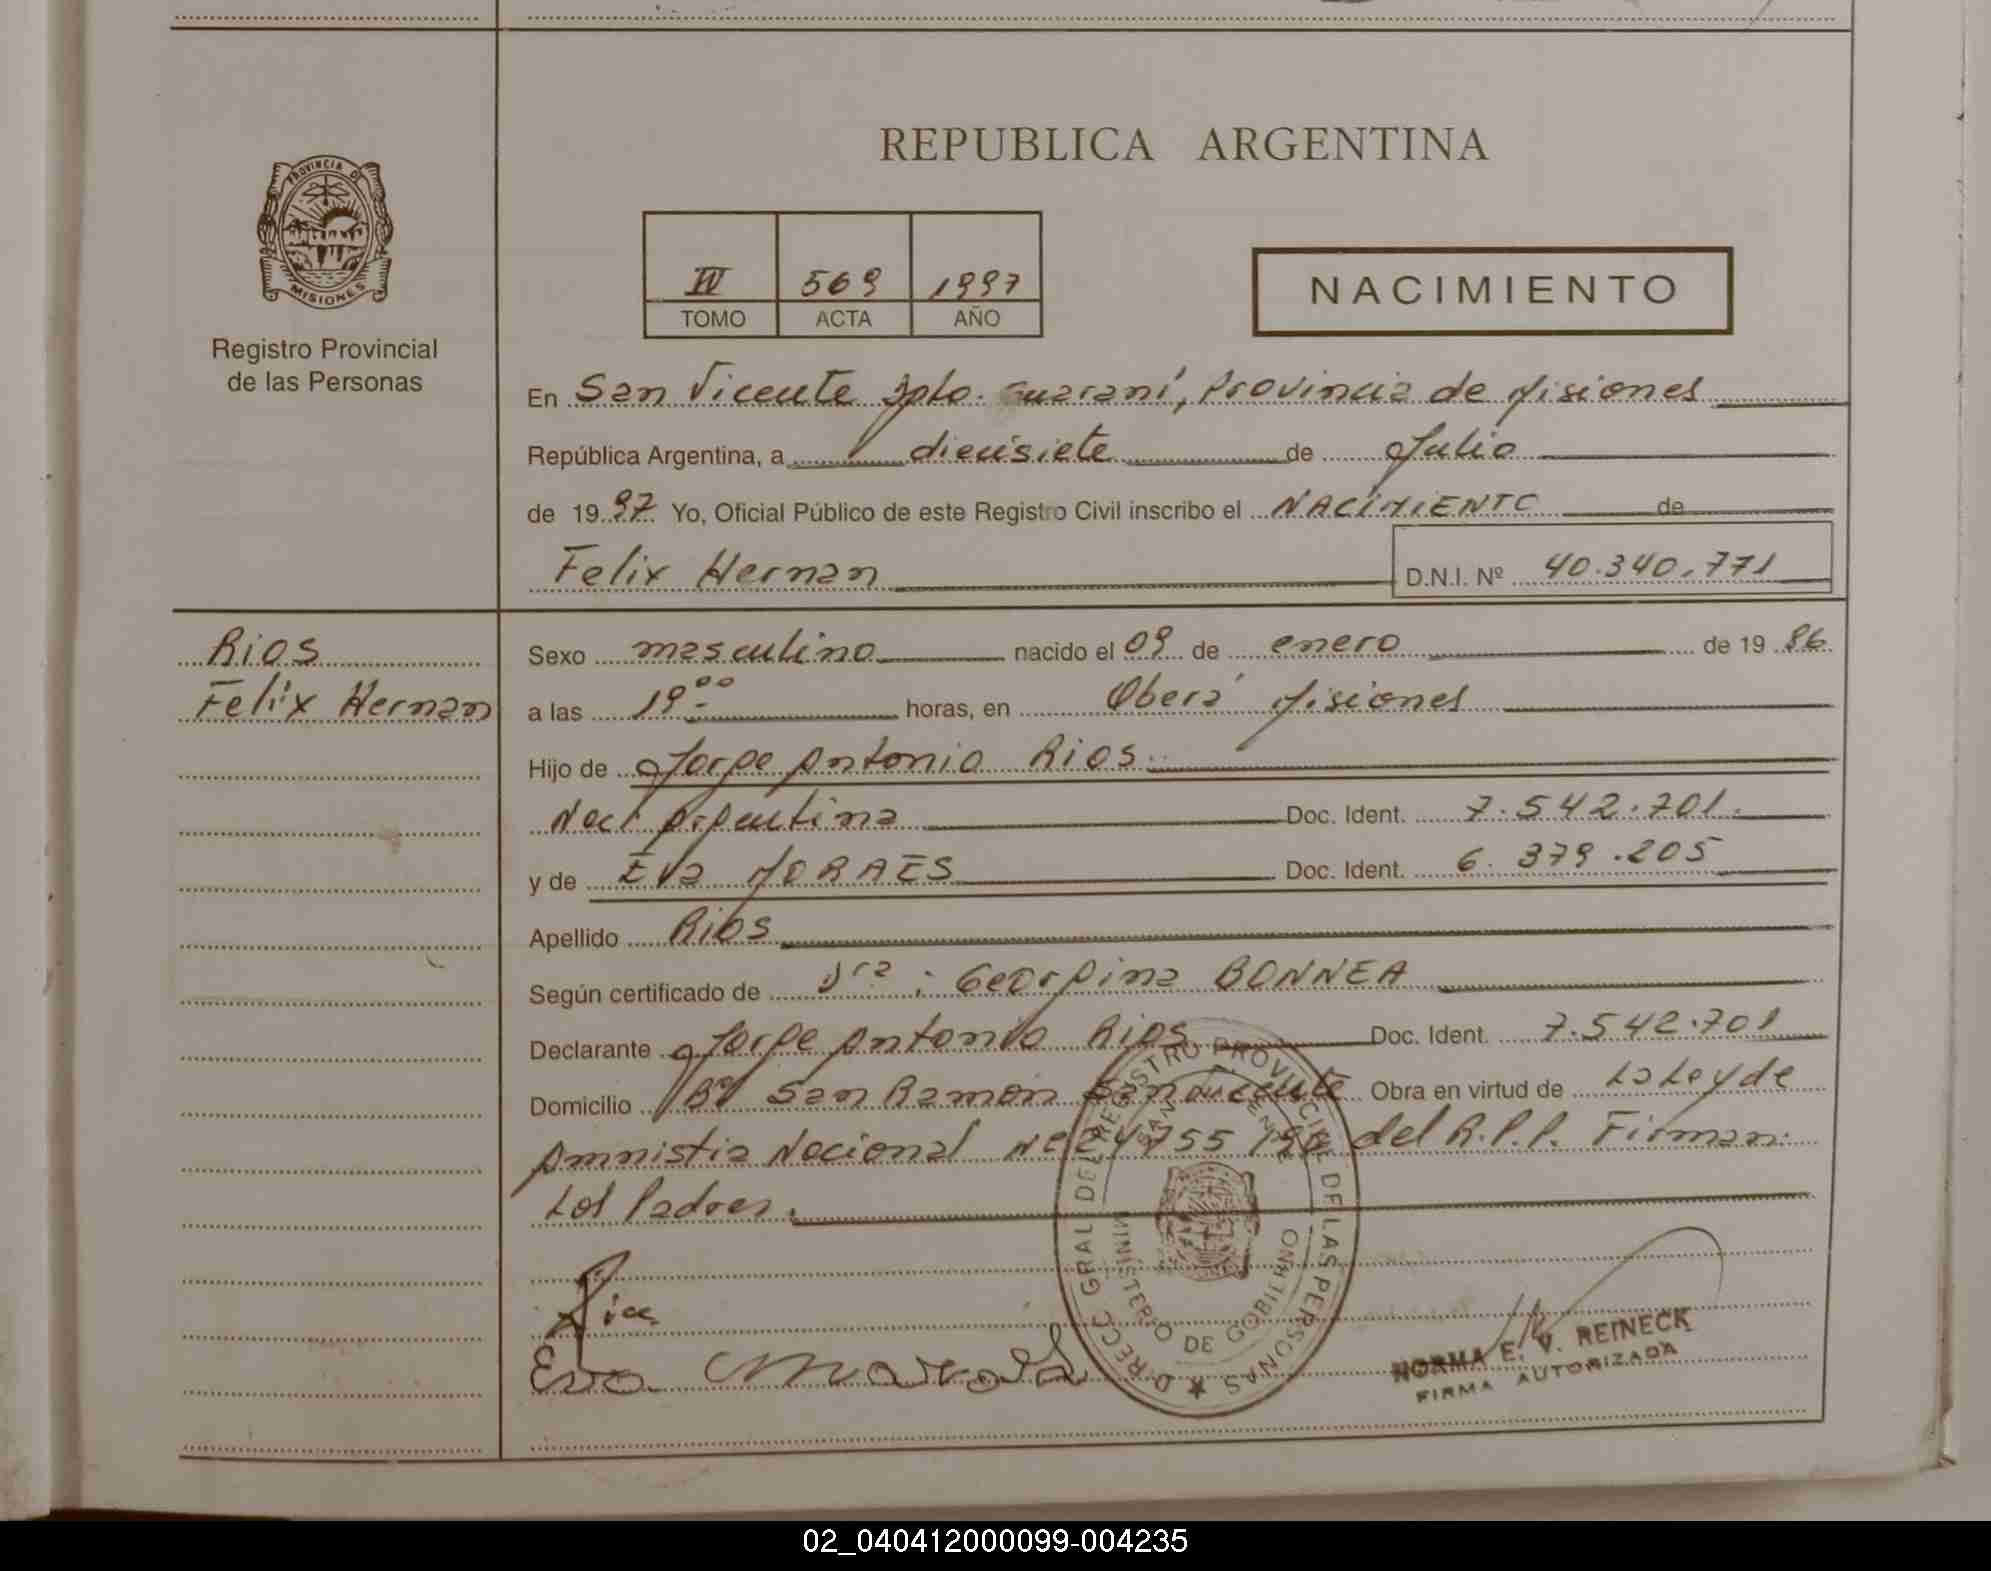 REPUBLICA ARGENTINA
PROVINCIA DE
MISIONES
Registro Provincial
de las Personas
IV 569 1997
TOMO ACTA AÑO
NACIMIENTO
En San Vicente Dpto. Guaraní, Provincia de Misiones
República Argentina, a diecisiete de Julio
de 1997 Yo, Oficial Público de este Registro Civil inscribo el NACIMIENTO de
Felix Hernan D.N.I. Nº 40.340.771
Rios
Felix Hernan
Sexo masculino nacido el 09 de enero de 1996
a las 19⁰⁰ horas, en Oberá Misiones
Hijo de Jorge Antonio Rios
Nac. Argentina Doc. Ident. 7.542.701
y de Eva MORAES Doc. Ident. 6.379.205
Apellido Rios
Según certificado de Dra: Georgina BONNEA
Declarante Jorge Antonio Rios Doc. Ident. 7.542.701
Domicilio Bº San Ramón San Vicente Obra en virtud de La Ley de
Amnistia Nacional Nº 24755/96 del R.P.P. Firman
Los Padres.
DIRECC. GRAL. DEL REGISTRO PROVINCIAL DE LAS PERSONAS
SAN VICENTE
MINISTERIO DE GOBIERNO
Eva
NORMA E. V. REINECK
FIRMA AUTORIZADA
02_040412000099-004235